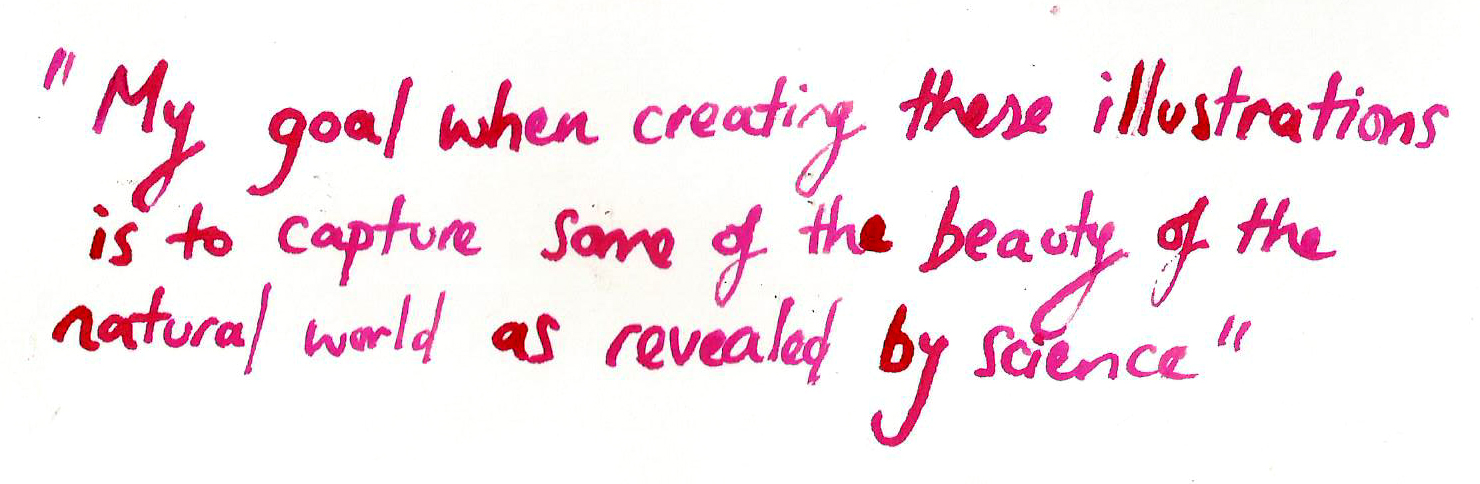 "My goal when creating these illustrations
is to capture some of the beauty of the
natural world as revealed by science"